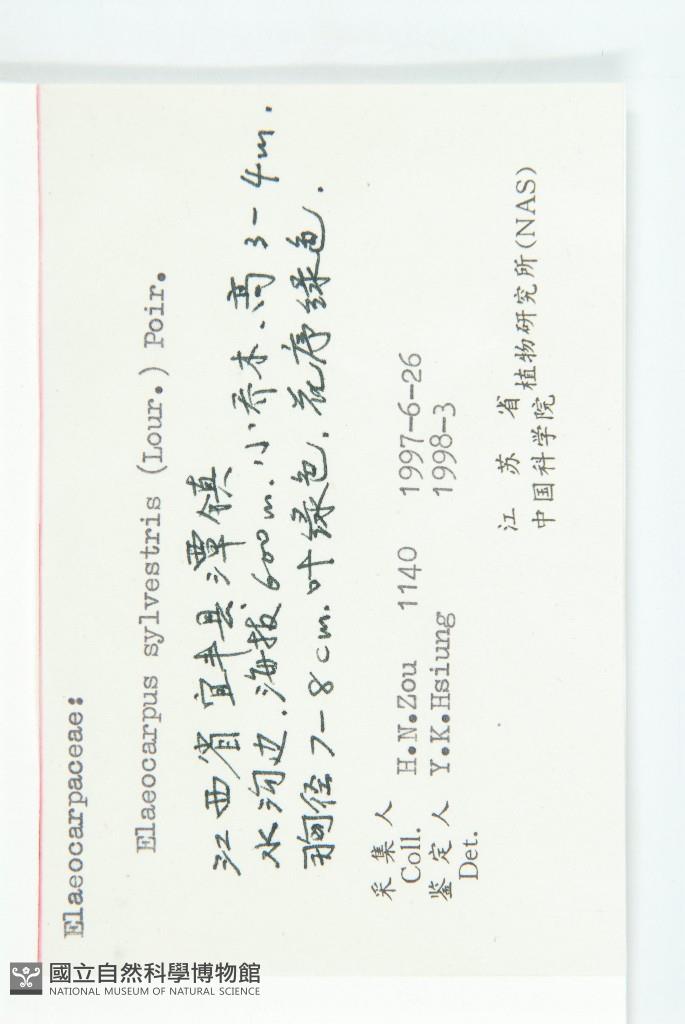 Elaeocarpaceae:
Elaeocarpus sylvestris (Lour.) Poir.
江西省宜丰县潭镇
水沟边.海拔600m.小乔木.高3-4m.
胸径7-8cm.叶绿色.花序绿色.
采集人 H.N.Zou 1140 1997-6-26
Coll.
鉴定人 Y.K.Hsiung 1998-3
Det.
江苏省植物研究所(NAS)
中国科学院
國立自然科學博物館
NATIONAL MUSEUM OF NATURAL SCIENCE